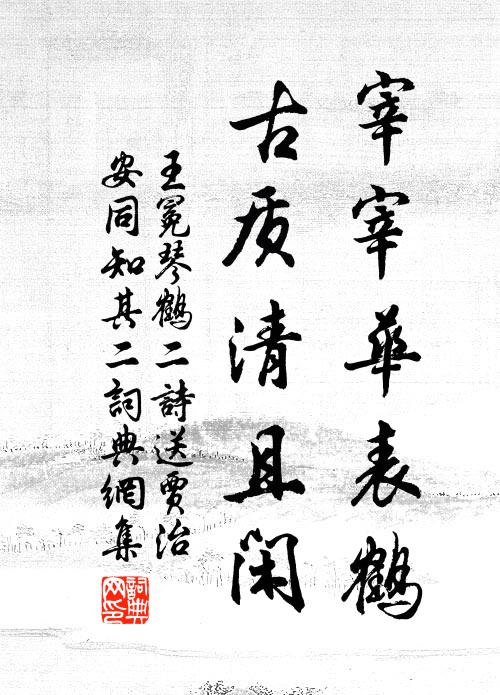 宰宰華表鶴
古质清且閑
王冕琴鶴二詩送賈治
安同知其二詞典網集
詞典网印